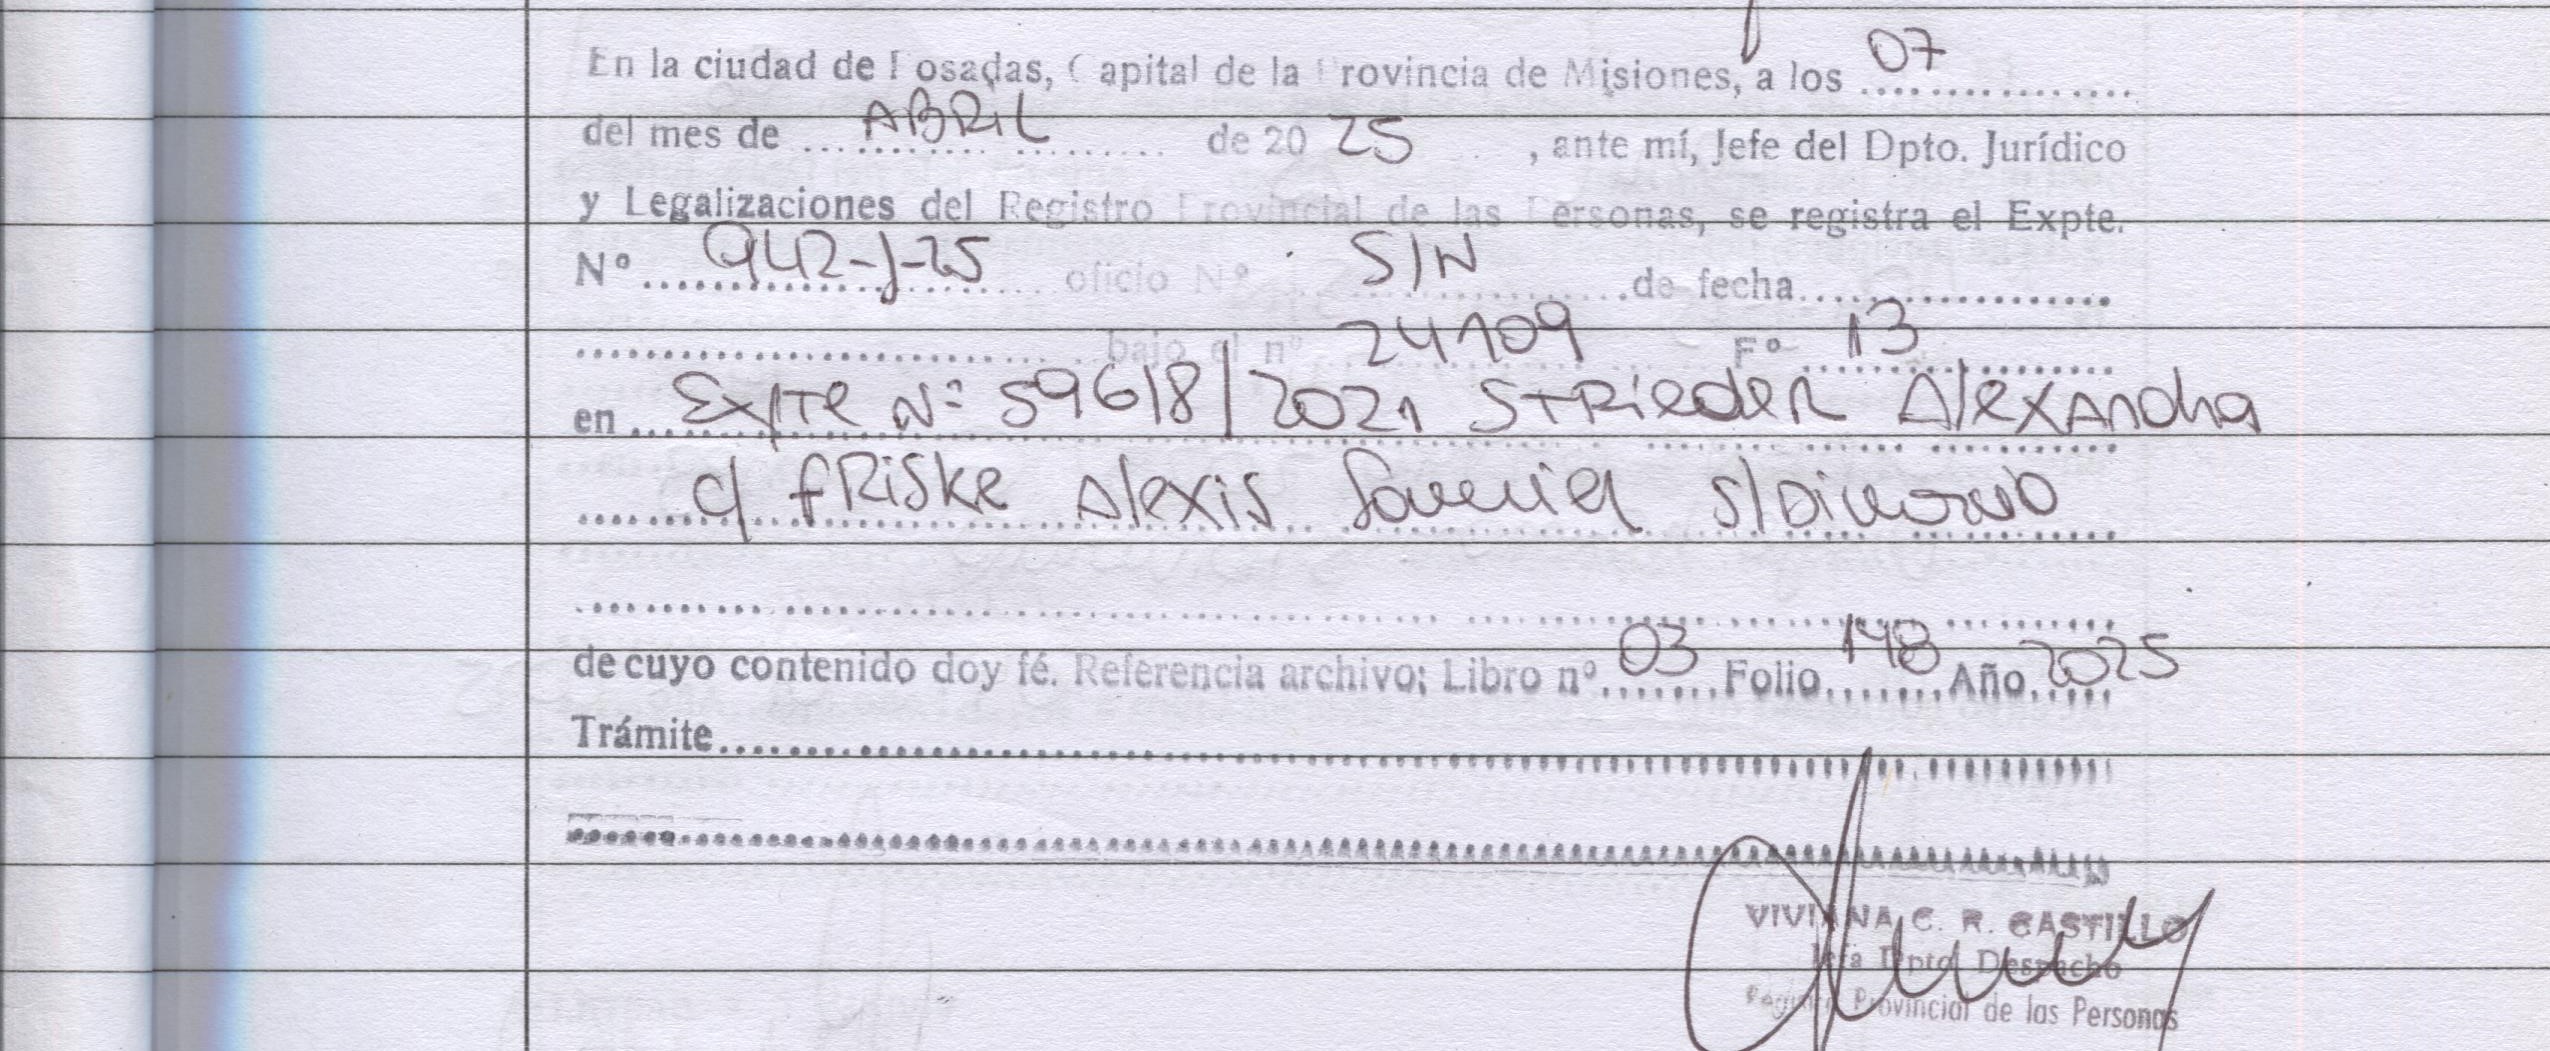 En la ciudad de Posadas, Capital de la Provincia de Misiones, a los 07
del mes de ABRIL de 20 25, ante mí, Jefe del Dpto. Jurídico
y Legalizaciones del Registro Provincial de las Personas, se registra el Expte.
Nº 942-J-25 oficio Nº S/N de fecha
bajo el nº 24109 Fº 13
en Expte Nº 59618/2021 Strieder Alexandra
c/ Friske Alexis s/Divorcio
de cuyo contenido doy fé. Referencia archivo; Libro nº 03 Folio 148 Año 2025
Trámite
VIVIANA C. R. CASTILLO
Jefa Dpto Despacho
Registro Provincial de las Personas